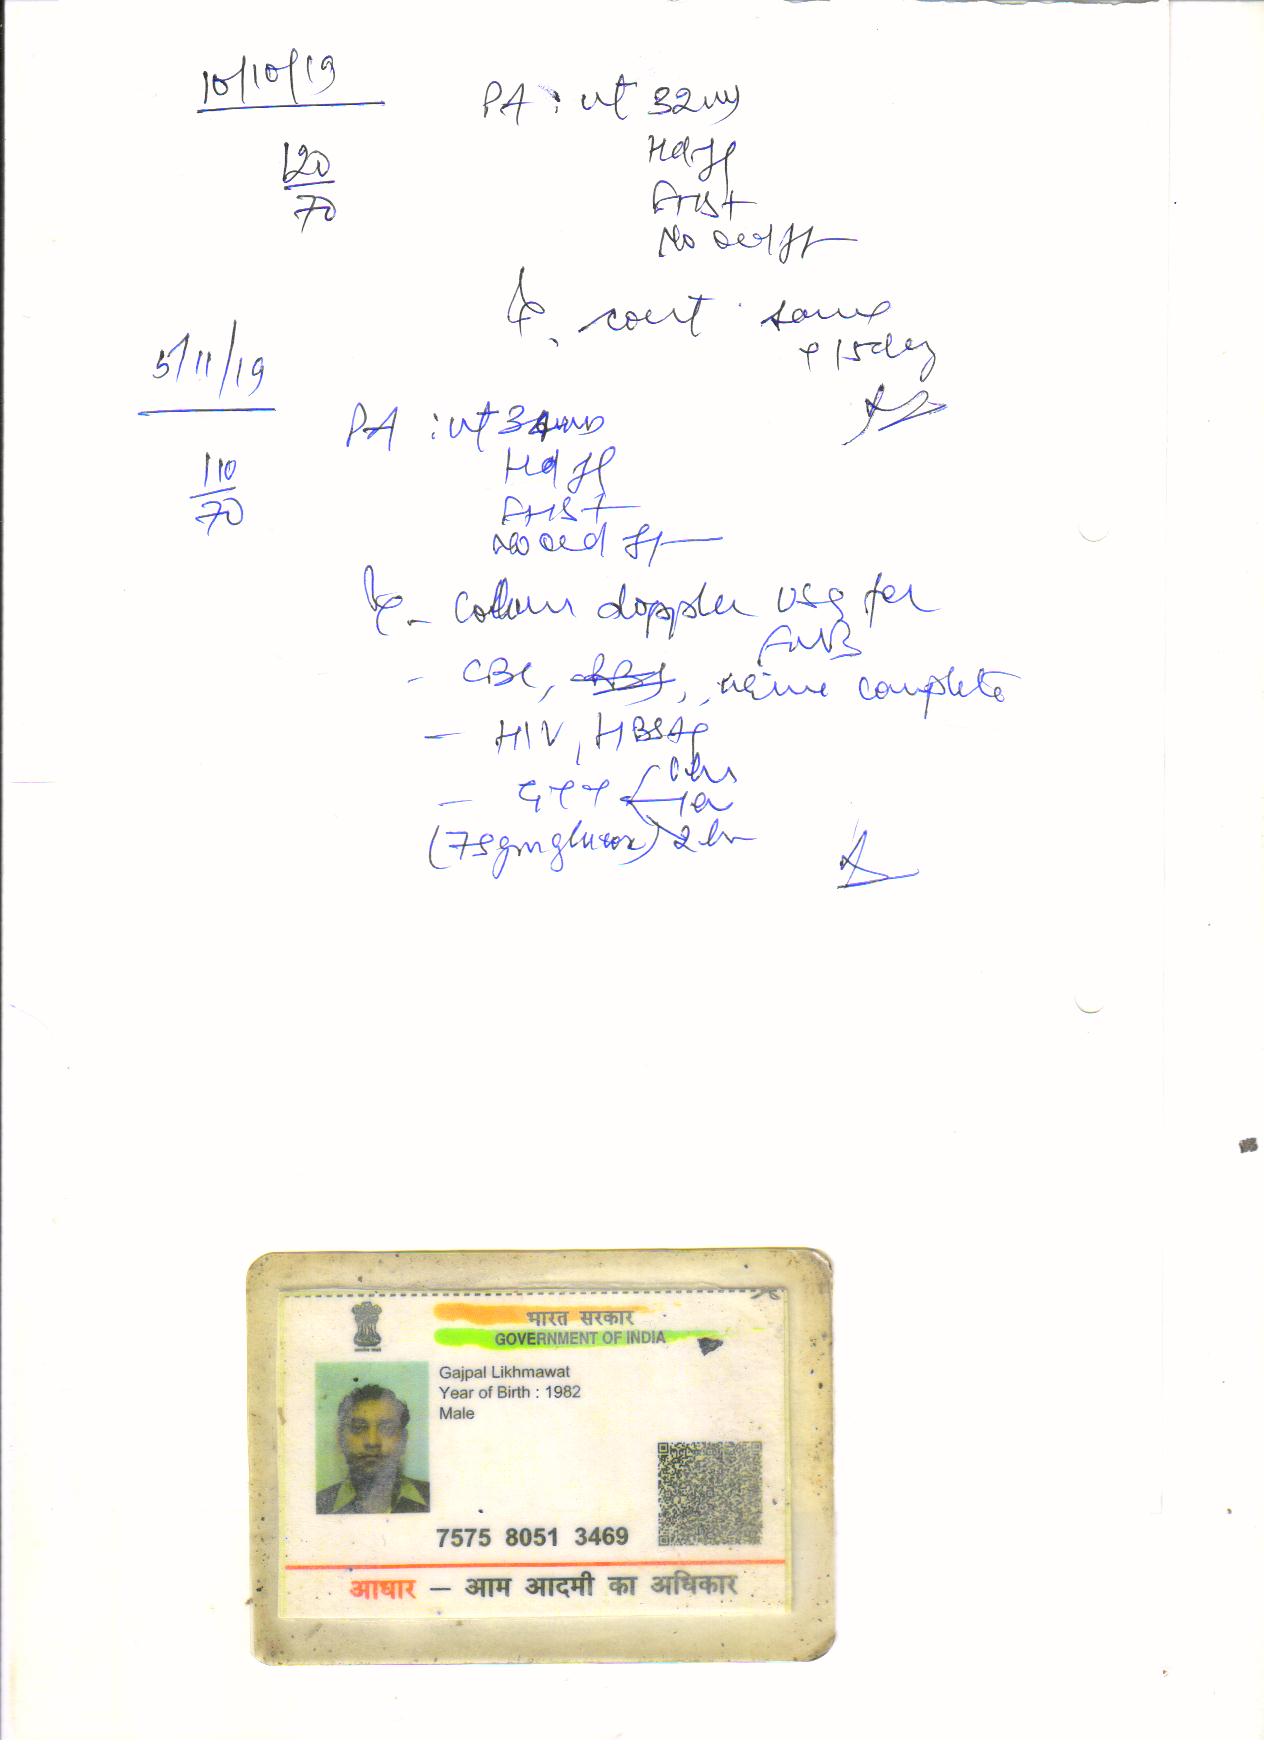 10/10/19
120
70
PA : ut 32
FHS+
No oed
cont same
+ 15 day
5/11/19
110
70
PA : ut 34
FHS+
No oed
- colour doppler USG for
FWB
- CBC, urine complete
- HIV, HBSAg
- GTT
(75gm glucose) 2 hr
भारत सरकार
GOVERNMENT OF INDIA
Gajpal Likhmawat
Year of Birth : 1982
Male
7575 8051 3469
आधार – आम आदमी का अधिकार